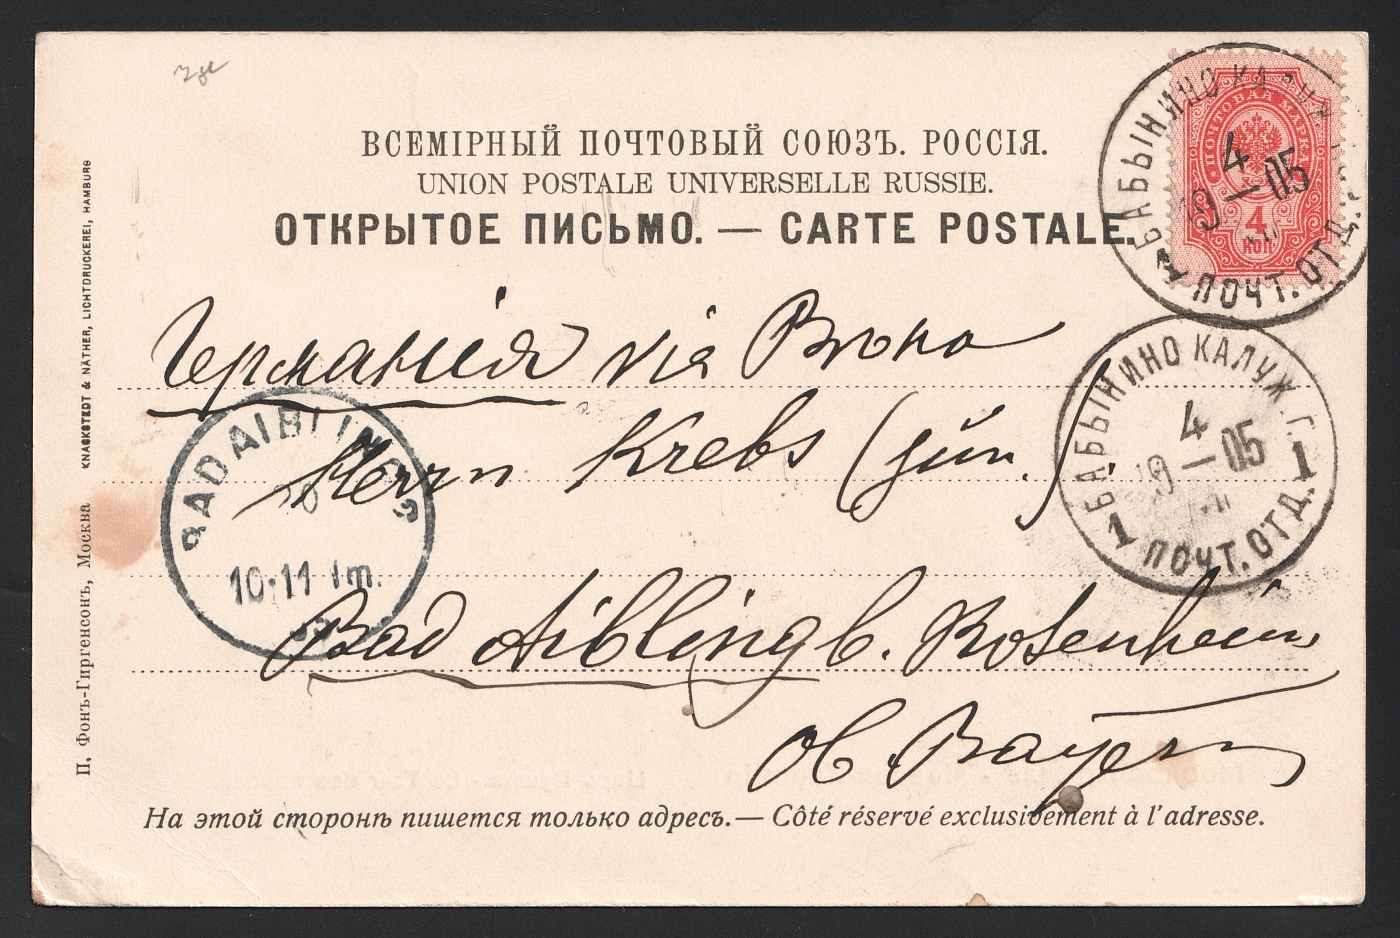 ВСЕМІРНЫЙ ПОЧТОВЫЙ СОЮЗЪ. РОССІЯ.
UNION POSTALE UNIVERSELLE RUSSIE.
ОТКРЫТОЕ ПИСЬМО. — CARTE POSTALE.
ПОЧТОВАЯ МАРКА
4
КОП
БАБЫНИНО
4
19—05
ПОЧТ. ОТД.
Германія via
Herrn Krebs (jun.)
Bad Aibling b. Rosenheim
Ob. Bayern
БАБЫНИНО КАЛУЖ. Г.
4
19—05
1 ПОЧТ. ОТД. 1
BAD AIBLING
10-11 Vm.
На этой сторонѣ пишется только адресъ. — Côté réservé exclusivement à l'adresse.
П. Фонъ-Гиргенсонъ, Москва KNACKSTEDT & NÄTHER, LICHTDRUCKEREI, HAMBURG